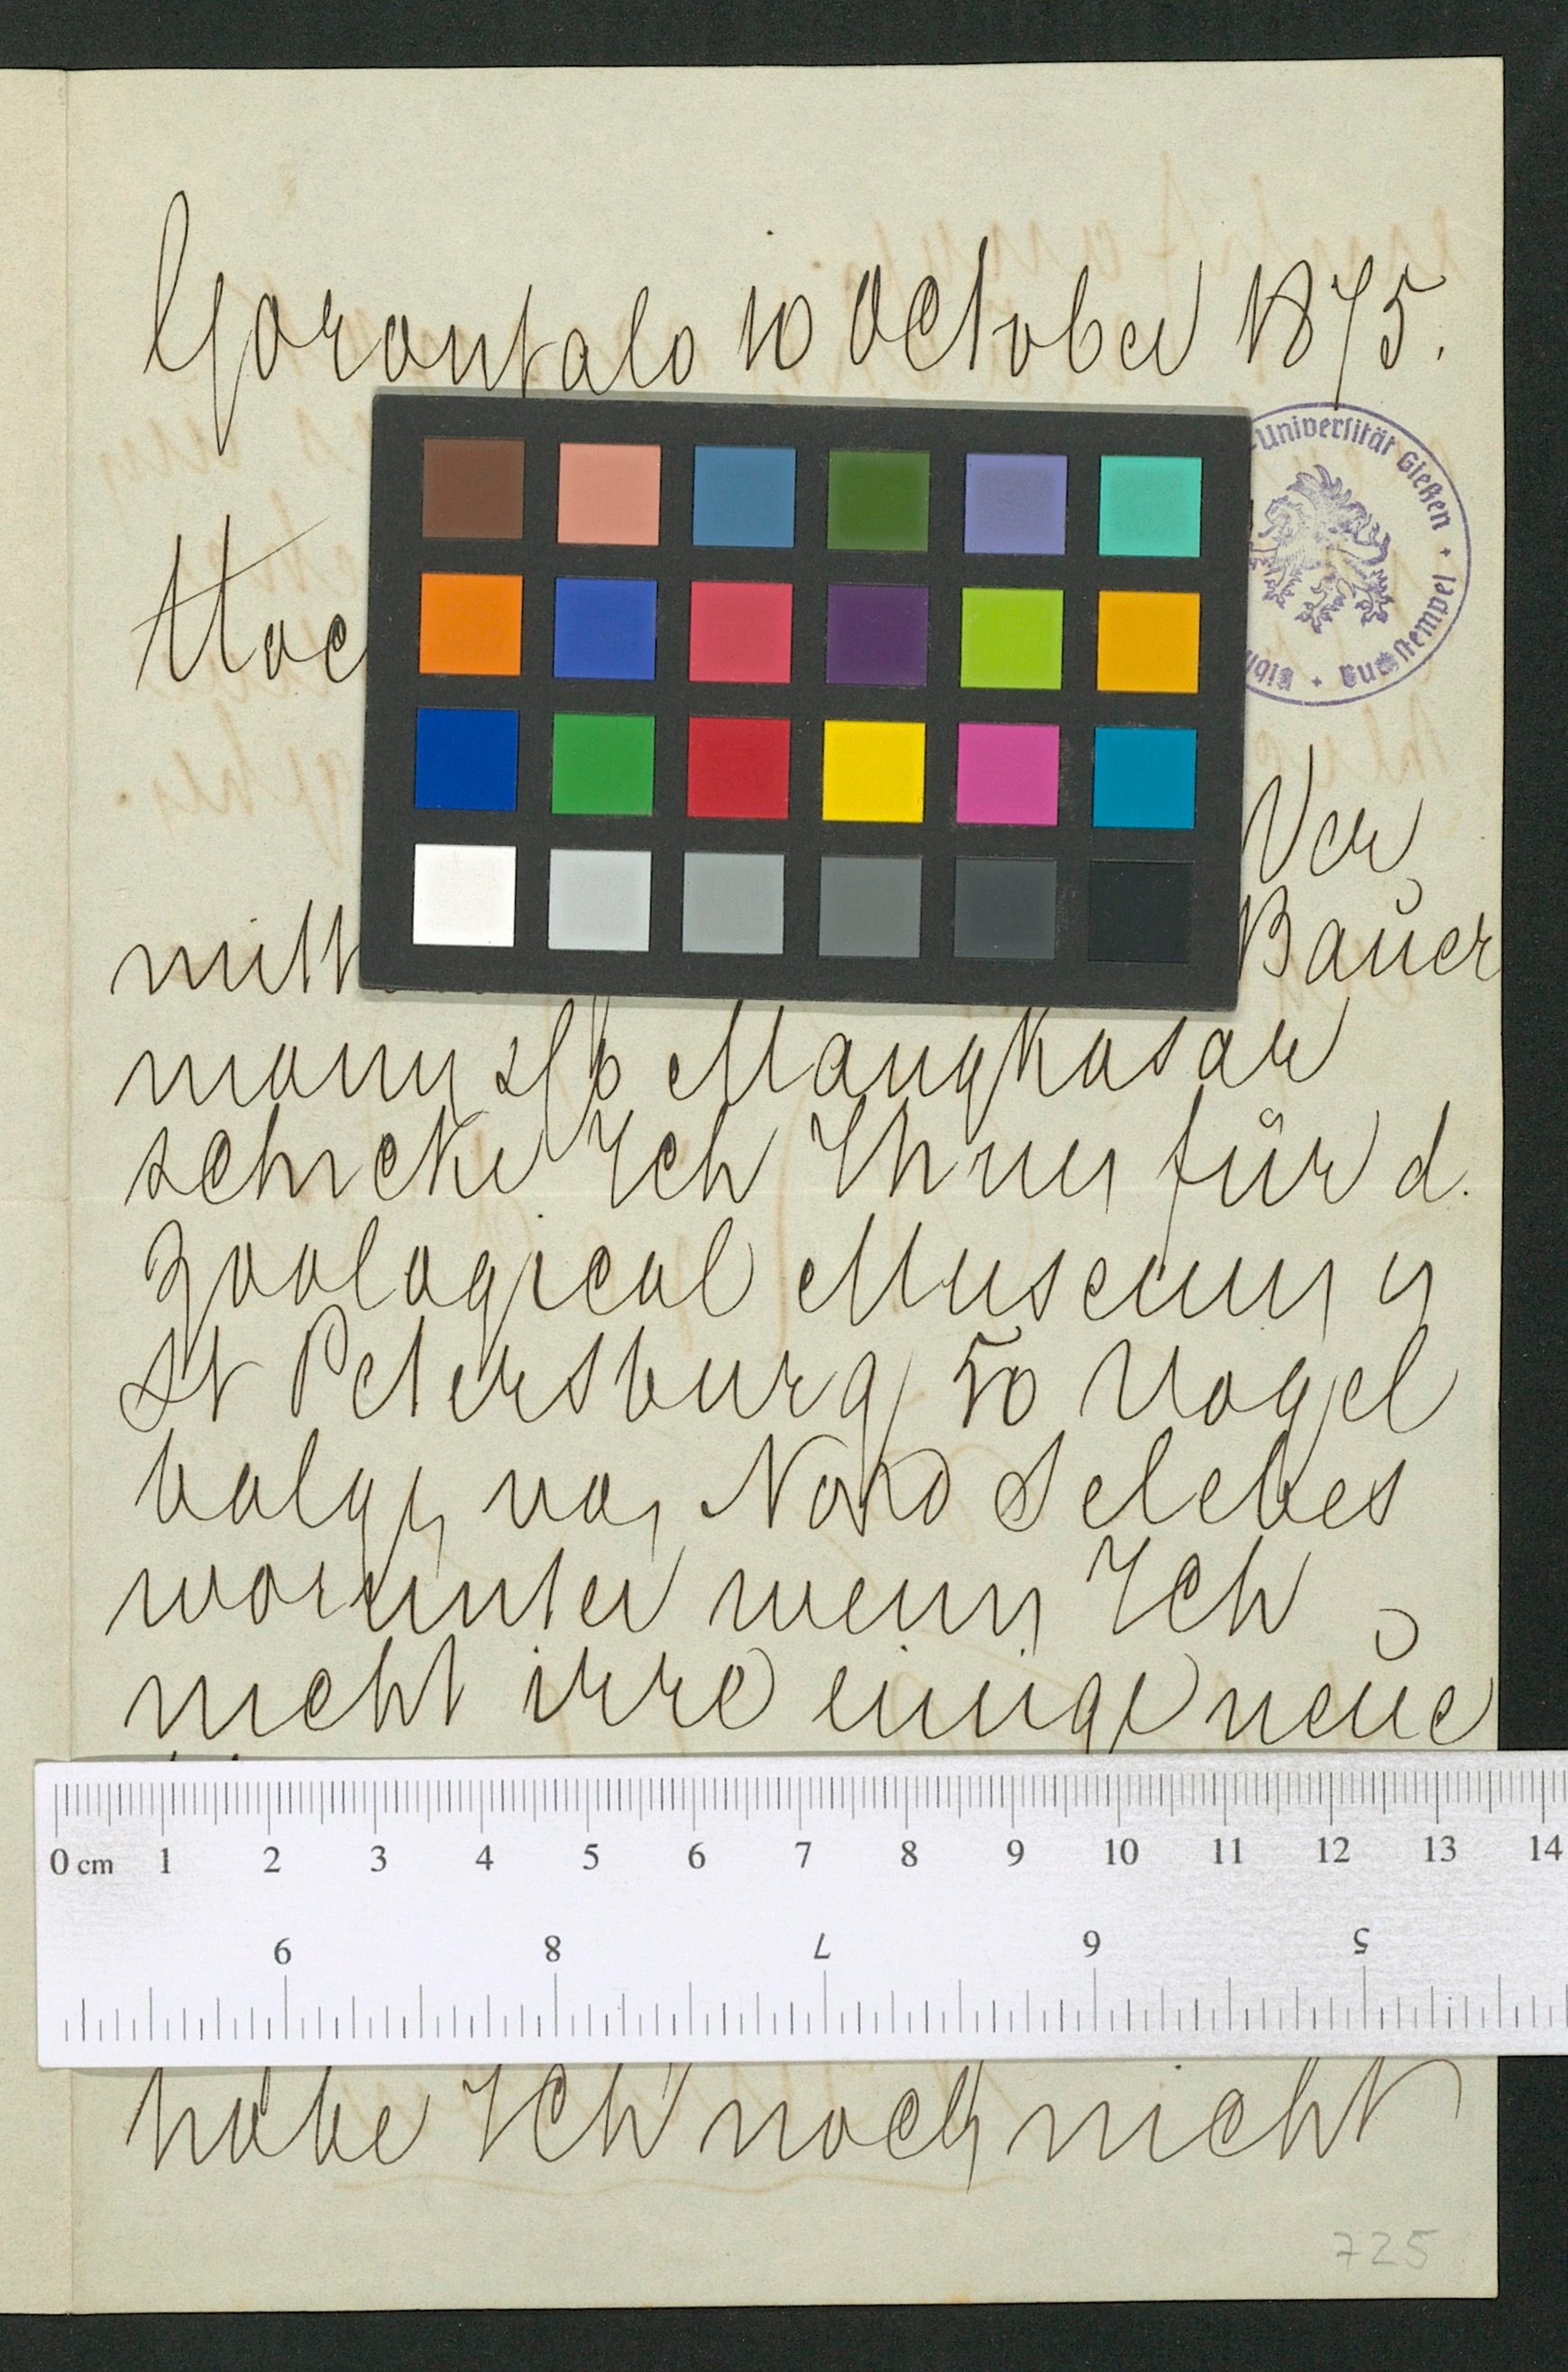 Gorontalo 10 October 1875.
Universität Gießen
Hoc
Ver
mitt Bauer
mann & Co Mangkasar
schicke Ich Ihnen für d.
Zoological Museum in
St Petersburg 50 Vogel
balgen von Nord Selebes
worunter wenn Ich
nicht irre einige neue
0 cm 1 2 3 4 5 6 7 8 9 10 11 12 13 14
9 8 7 6 5
habe Ich noch nicht
725